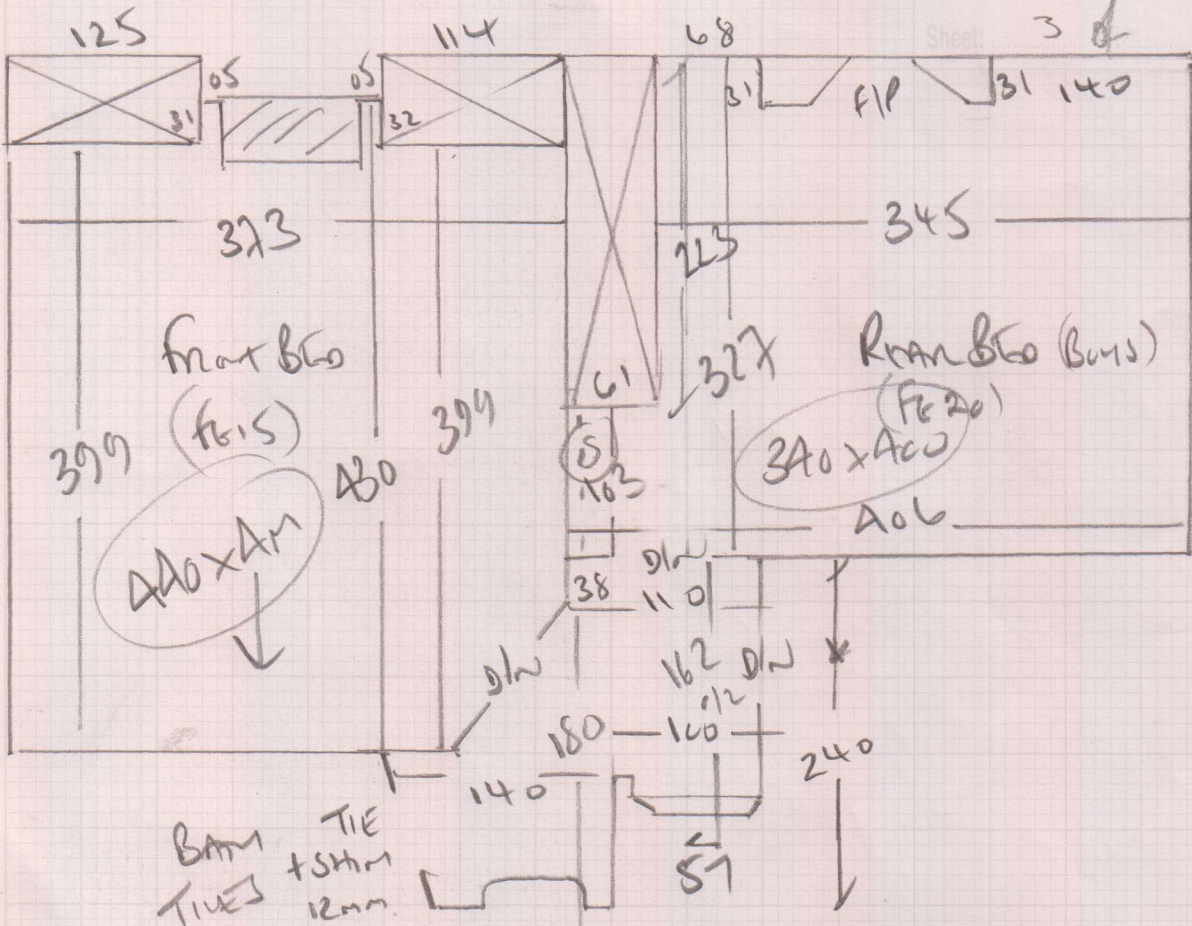 125
114
68
Sheet: 3
05
05
31
32
31
F/P
31
140
373
345
223
Front BED
(FE15)
399
430
399
440 x 4m
61
327
Rear BED (Boys)
(FE20)
340 x 400
103
406
D/N
38
110
D/N
162
D/N
180
100
240
140
57
BATH
TILES
TIE
12mm